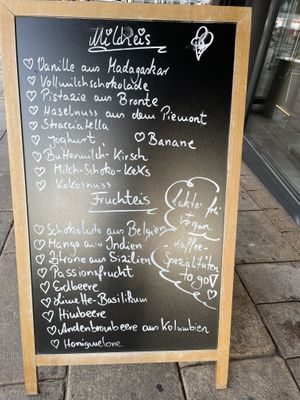 Milcheis
Vanille aus Madagaskar
Vollmilchschokolade
Pistazie aus Bronte
Haselnuss aus dem Piemont
Stracciatella
Joghurt
Banane
Buttermilch-Kirsch
Milch-Schoko-Keks
Kokosnuss
Fruchteis
Schokolade aus Belgien
Mango aus Indien
Zitrone aus Sizilien
Passionsfrucht
Erdbeere
Limette-Basilikum
Himbeere
Andenbrombeere aus Kolumbien
Honigmelone
laktosefrei
+
vegan
Kaffee-
Spezialitäten
to go